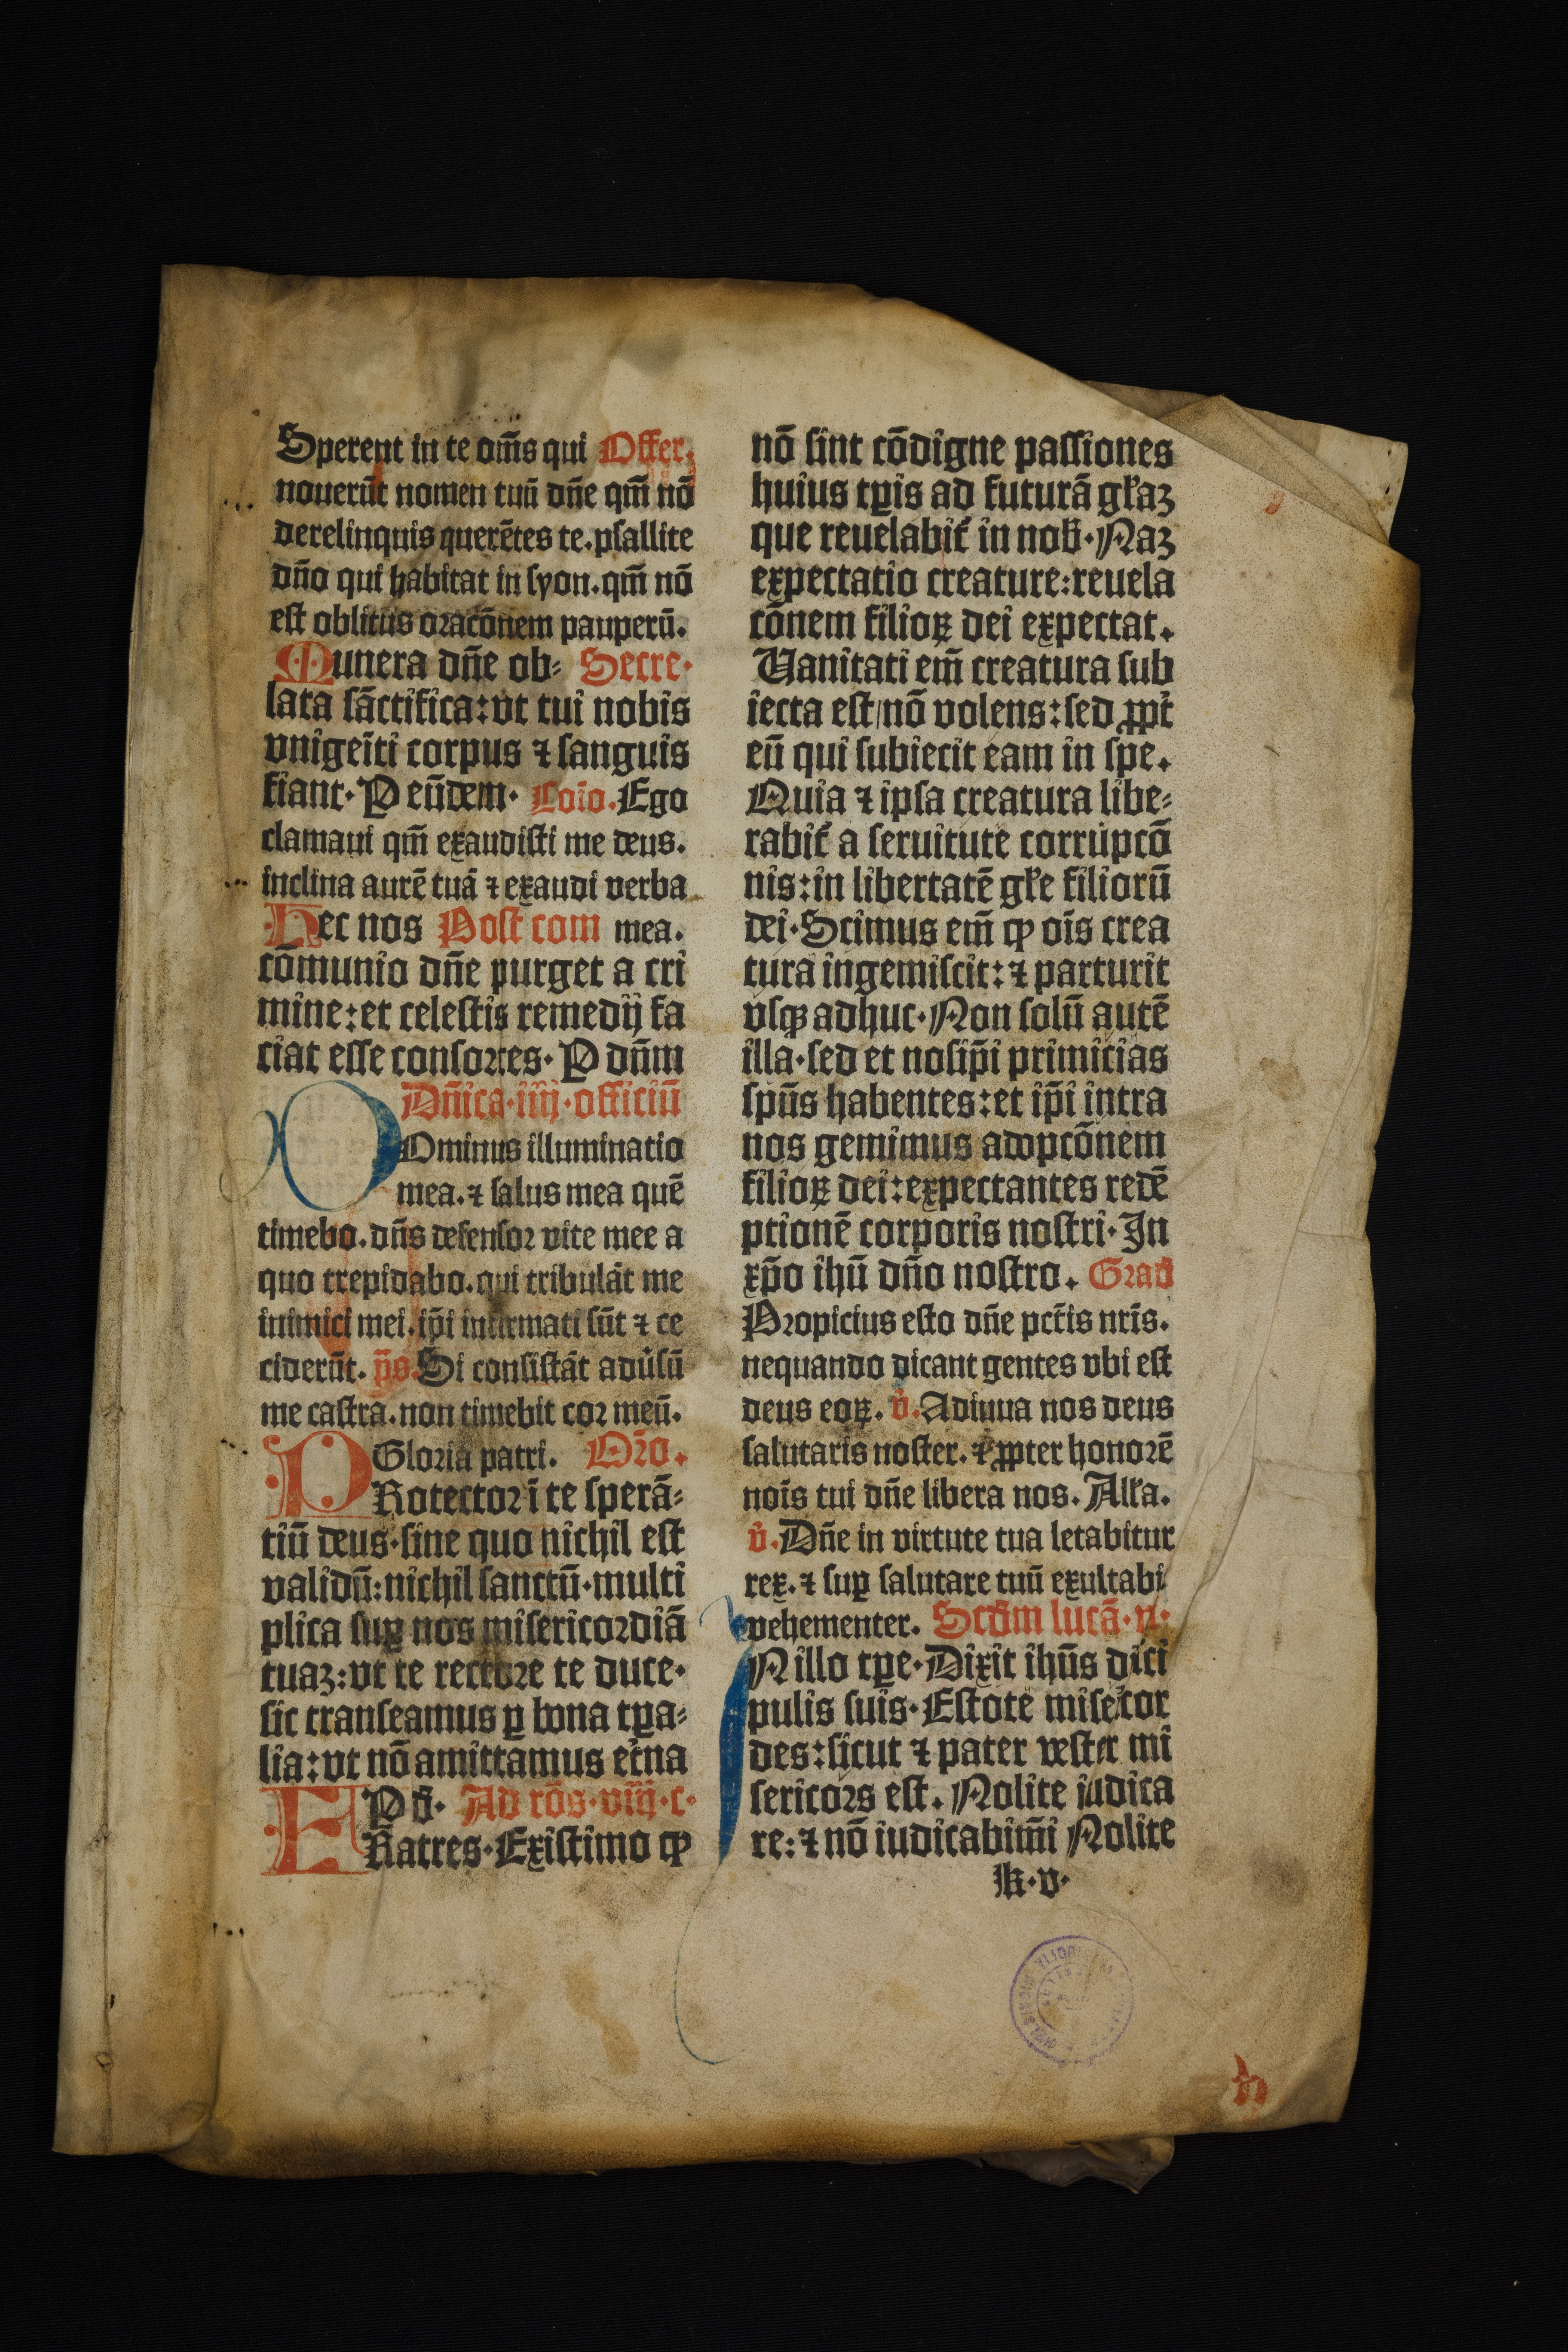 Sperent in te om̄s qui Offer.
nouerūt nomen tuū dn̄e qm̄ nō
derelinquis querētes te. psallite
dn̄o qui habitat in syon. qm̄ nō
est oblitus oracōnem pauperū.
Munera dn̄e ob⸗ Secre·
lata sāctifica: vt tui nobis
vnigeīti corpus ⁊ sanguis
fiant· P eūdem· Cōio. Ego
clamaui qm̄ exaudisti me deus.
inclina aurē tuā ⁊ exaudi verba
Hec nos Post com mea.
cōmunio dn̄e purget a cri
mine: et celestis remedij fa
ciat esse consortes· P dn̄m
Dn̄ica·iiij·officiū
DOminus illuminatio
mea. ⁊ salus mea quē
timebo. dn̄s defensor vite mee a
quo trepidabo. qui tribulāt me
inimici mei. ip̄i infirmati sūt ⁊ ce
ciderūt. p̄s. Si consistāt adūsū
me castra. non timebit cor meū.
Gloria patri. Or̄o.
PRotector ī te sperā⸗
tiū deus· sine quo nichil est
validū: nichil sanctū· multi
plica suꝑ nos misericordiā
tuaꝫ: vt te rectore te duce·
sic transeamus ꝑ bona tꝑa⸗
lia: vt nō amittamus et̄na
P d̄· Ad rōs·viij·c·
FRatres· Existimo ꝙ
nō sint cōdigne passiones
huius tꝑis ad futurā gl̄aꝫ
que reuelabit̄ in nob̄· Naꝫ
expectatio creature: reuela
cōnem filioꝝ dei expectat.
Uanitati em̄ creatura sub
iecta est/ nō volens: sed ꝓpt̄
eū qui subiecit eam in spe.
Quia ⁊ ipsa creatura libe⸗
rabit̄ a seruitute corrupcō
nis: in libertatē gl̄e filiorū
dei· Scimus em̄ ꝙ ois crea
tura ingemiscit: ⁊ parturit
vsqꝫ adhuc· Non solū autē
illa· sed et nosip̄i primicias
spūs habentes: et ip̄i intra
nos gemimus adopcōnem
filioꝝ dei: expectantes redē
ptionē corporis nostri· In
xp̄o ihū dn̄o nostro. Grad̄
Propicius esto dn̄e pctīs nr̄is.
nequando dicant gentes vbi est
deus eoꝝ. v̄. Adiuua nos deus
salutaris noster. ⁊ ꝓpter honorē
nōis tui dn̄e libera nos. All̄a.
v̄. Dn̄e in virtute tua letabitur
rex. ⁊ suꝑ salutare tuū exultabi
vehementer. Scd̄m lucā·vi·
INillo tꝑe· Dixit ihūs dici
pulis suis· Estote mise̓cor
des: sicut ⁊ pater vester mi
sericors est. Nolite iudica
re: ⁊ nō iudicabim̄i Nolite
k·v·